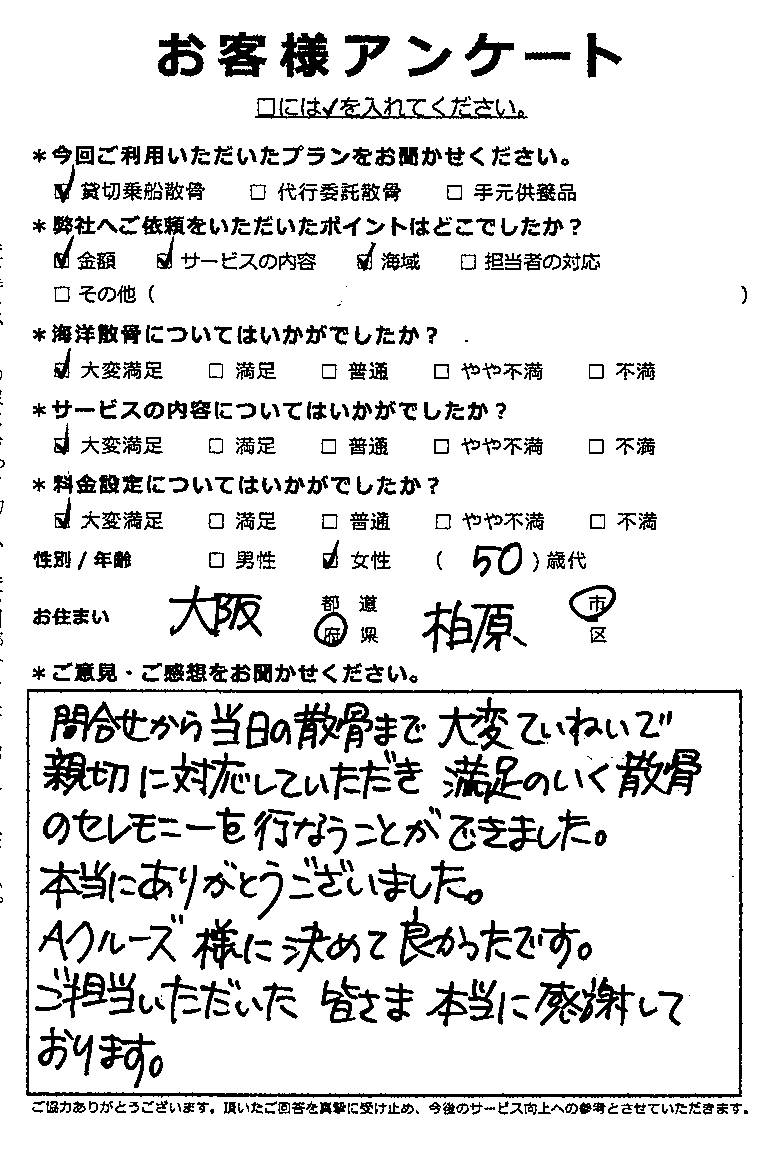 お客様アンケート
□には✓を入れてください。
＊今回ご利用いただいたプランをお聞かせください。
☑ 貸切乗船散骨 □ 代行委託散骨 □ 手元供養品
＊弊社へご依頼をいただいたポイントはどこでしたか？
☑ 金額 ☑ サービスの内容 ☑ 海域 □ 担当者の対応
□ その他（ ）
＊海洋散骨についてはいかがでしたか？
☑ 大変満足 □ 満足 □ 普通 □ やや不満 □ 不満
＊サービスの内容についてはいかがでしたか？
☑ 大変満足 □ 満足 □ 普通 □ やや不満 □ 不満
＊料金設定についてはいかがでしたか？
☑ 大変満足 □ 満足 □ 普通 □ やや不満 □ 不満
性別 / 年齢 □ 男性 ☑ 女性 （ 50 ）歳代
お住まい 大阪 都 道 府 県 柏原 市 区
＊ご意見・ご感想をお聞かせください。
問合せから当日の散骨まで 大変ていねいで
親切に対応していただき 満足のいく散骨
のセレモニーを行なうことができました。
本当にありがとうございました。
Aクルーズ 様に決めて良かったです。
ご担当いただいた 皆さま 本当に感謝して
おります。
ご協力ありがとうございます。頂いたご回答を真摯に受け止め、今後のサービス向上への参考とさせていただきます。